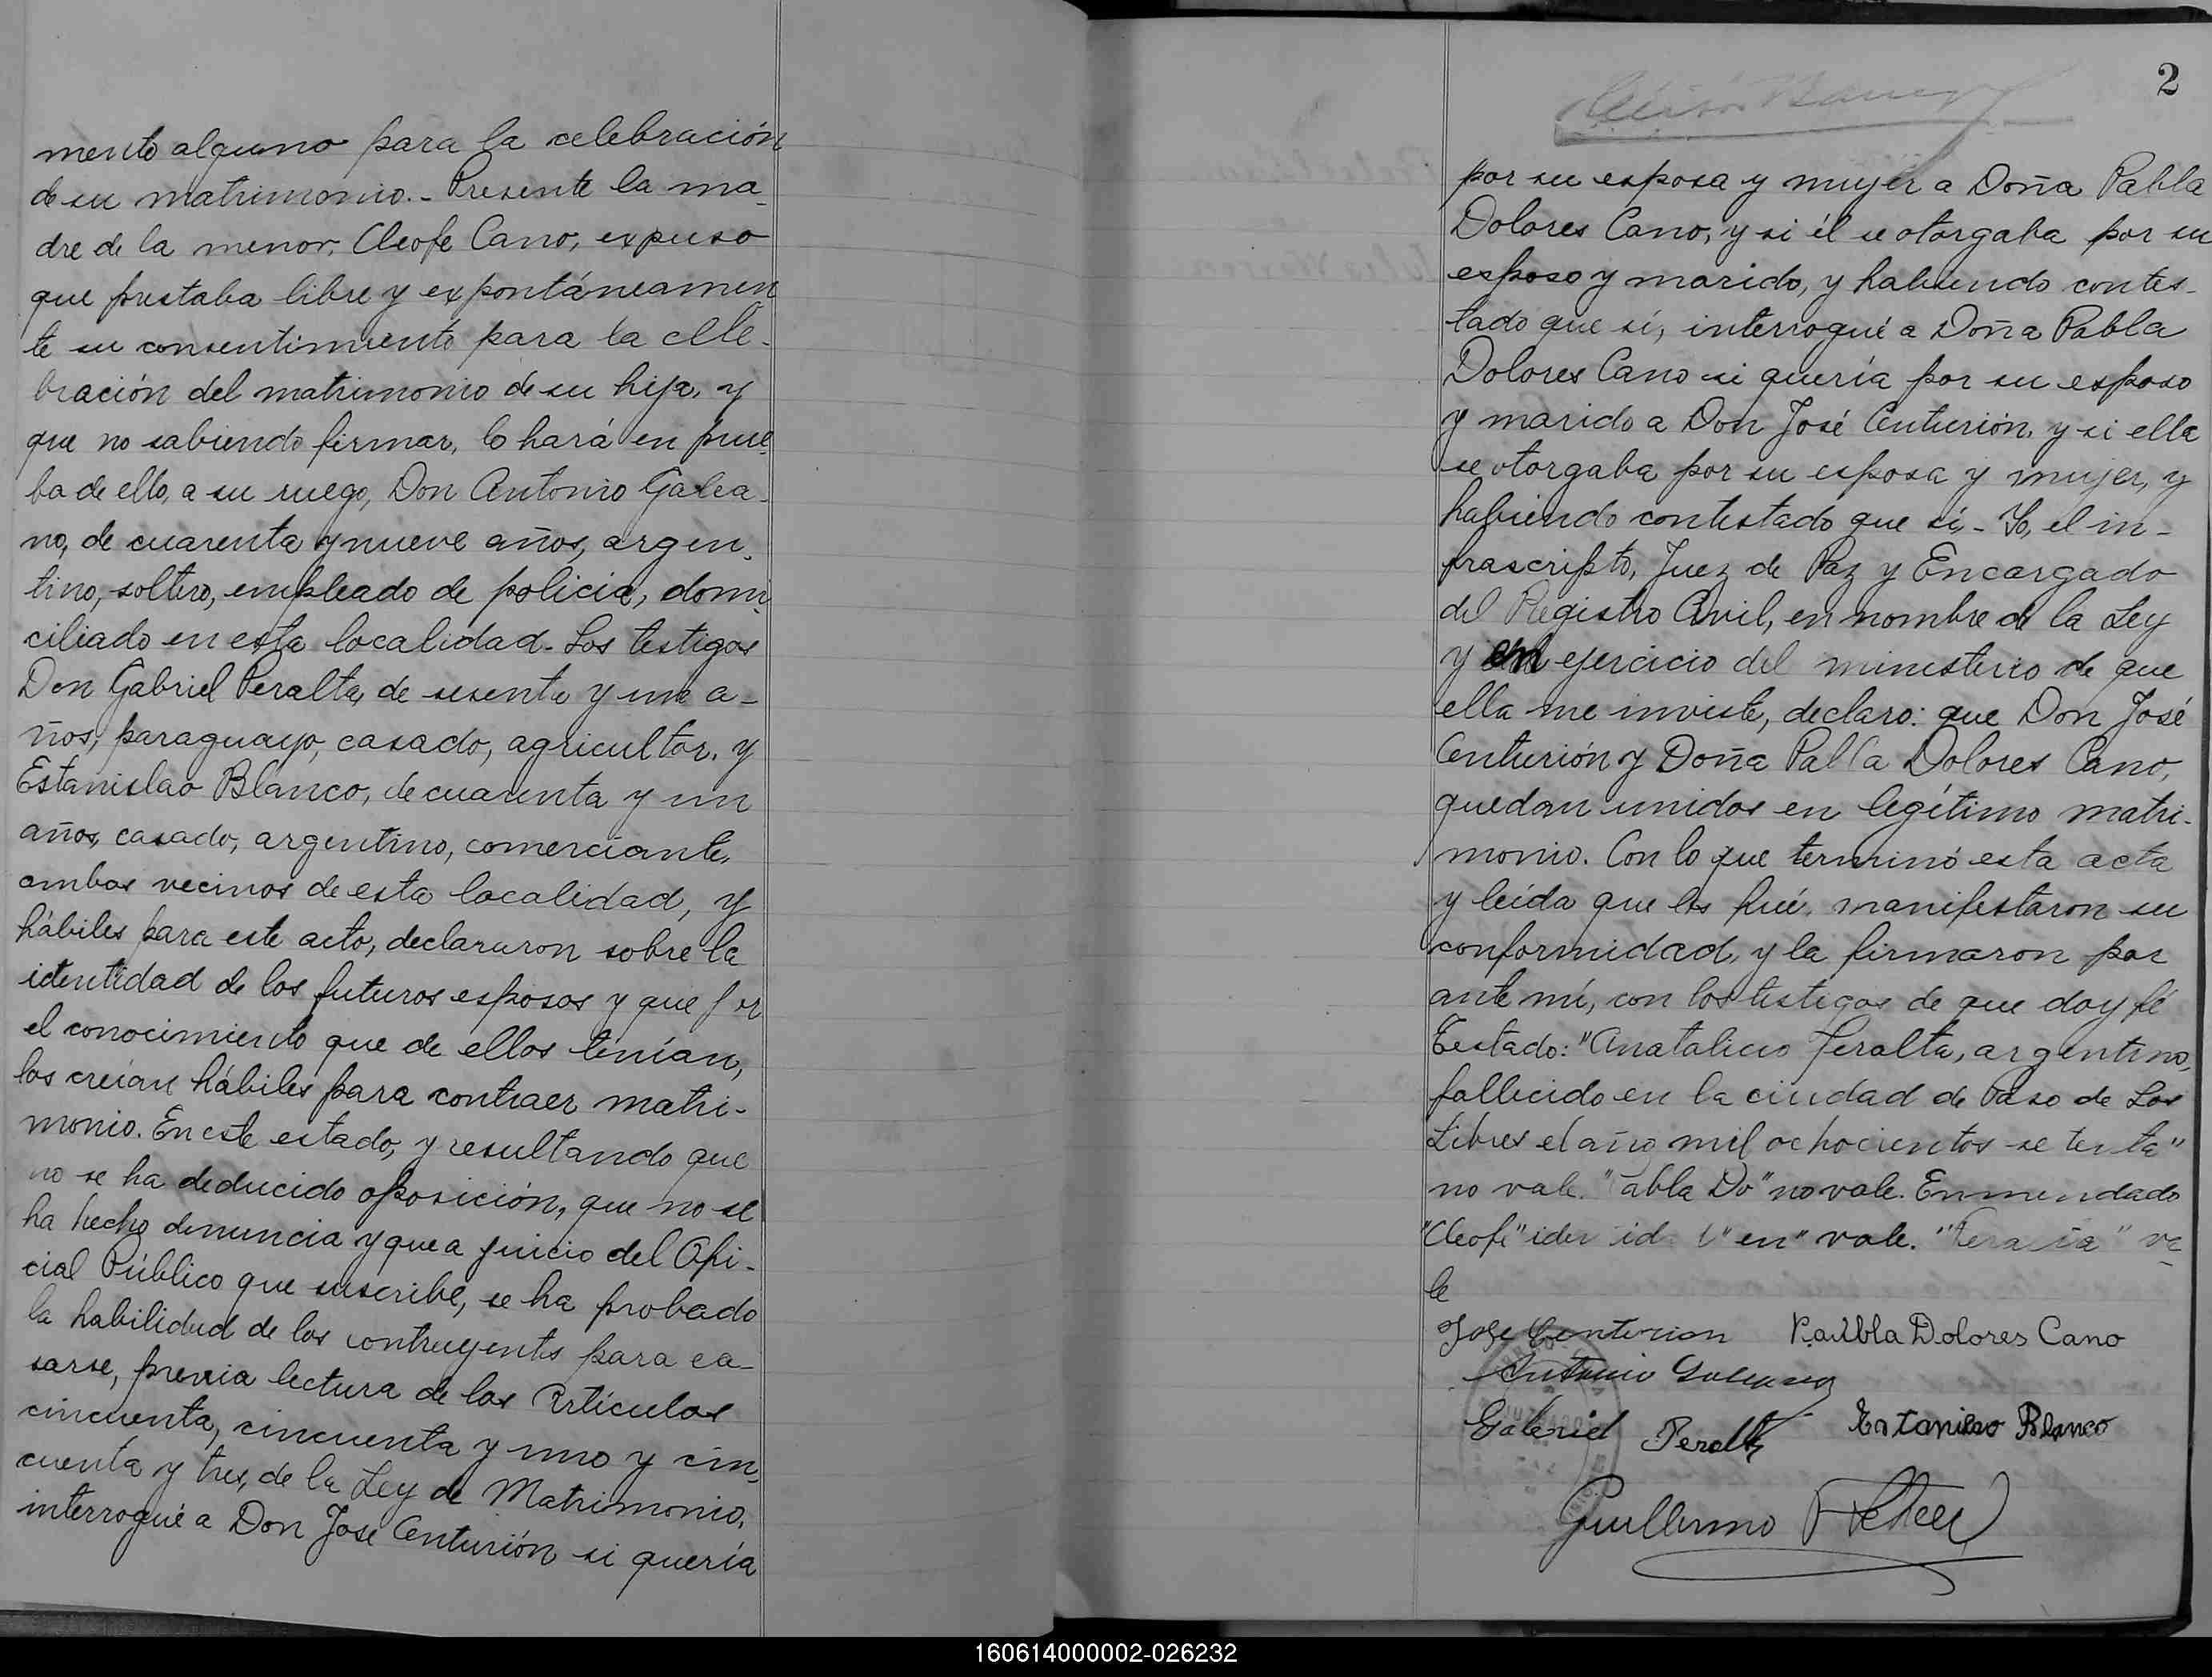 mento alguno para la celebración
de su matrimonio.- Presente la ma-
dre de la menor, Cleofe Cano, expuso
que prestaba libre y expontáneamen
te su consentimiento para la cele-
bración del matrimonio de su hija, y
que no sabiendo firmar, lo hará en prue-
ba de ello, a su ruego, Don Antonio Galea-
no, de cuarenta y nueve años, argen-
tino, soltero, empleado de policía, domi-
ciliado en esta localidad. Los testigos
Don Gabriel Peralta, de sesenta y un a-
ños, paraguayo, casado, agricultor, y
Estanislao Blanco, de cuarenta y un
años, casado, argentino, comerciante,
ambos vecinos de esta localidad, y
hábiles para este acto, declararon sobre la
identidad de los futuros esposos y que por
el conocimiento que de ellos tenían,
los creían hábiles para contraer matri-
monio. En este estado, y resultando que
no se ha deducido oposición, que no se
ha hecho denuncia y que a juicio del Ofi-
cial Público que suscribe, se ha probado
la habilidad de los contrayentes para ca-
sarse, previa lectura de los Artículos
cincuenta, cincuenta y uno y cin-
cuenta y tres, de la Ley de Matrimonio,
interrogué a Don José Centurión si quería
2
por su esposa y mujer a Doña Pabla
Dolores Cano, y si él se otorgaba por su
esposo y marido, y habiendo contes-
tado que sí, interrogué a Doña Pabla
Dolores Cano si quería por su esposo
y marido a Don José Centurión, y si ella
se otorgaba por su esposa y mujer, y
habiendo contestado que sí,- Yo, el in-
frascripto, Juez de Paz y Encargado
del Registro Civil, en nombre de la Ley
y en ejercicio del ministerio de que
ella me inviste, declaro: que Don José
Centurión y Doña Pabla Dolores Cano,
quedan unidos en legítimo matri-
monio. Con lo que terminó esta acta
y leída que les fué, manifestaron su
conformidad, y la firmaron por
ante mí, con los testigos de que doy fé
Testado: "Anatalicio Peralta, argentino,
fallecido en la ciudad de Paso de Los
Libres el año mil ochocientos setenta"
no vale. "Pabla Do" no vale. Enmendado
"Cleofe" "en" vale. va-
le
Jose Centurion Pabla Dolores Cano
Antonio Galeano
Gabriel Peralta Estanislao Blanco
Guillermo
160614000002-026232